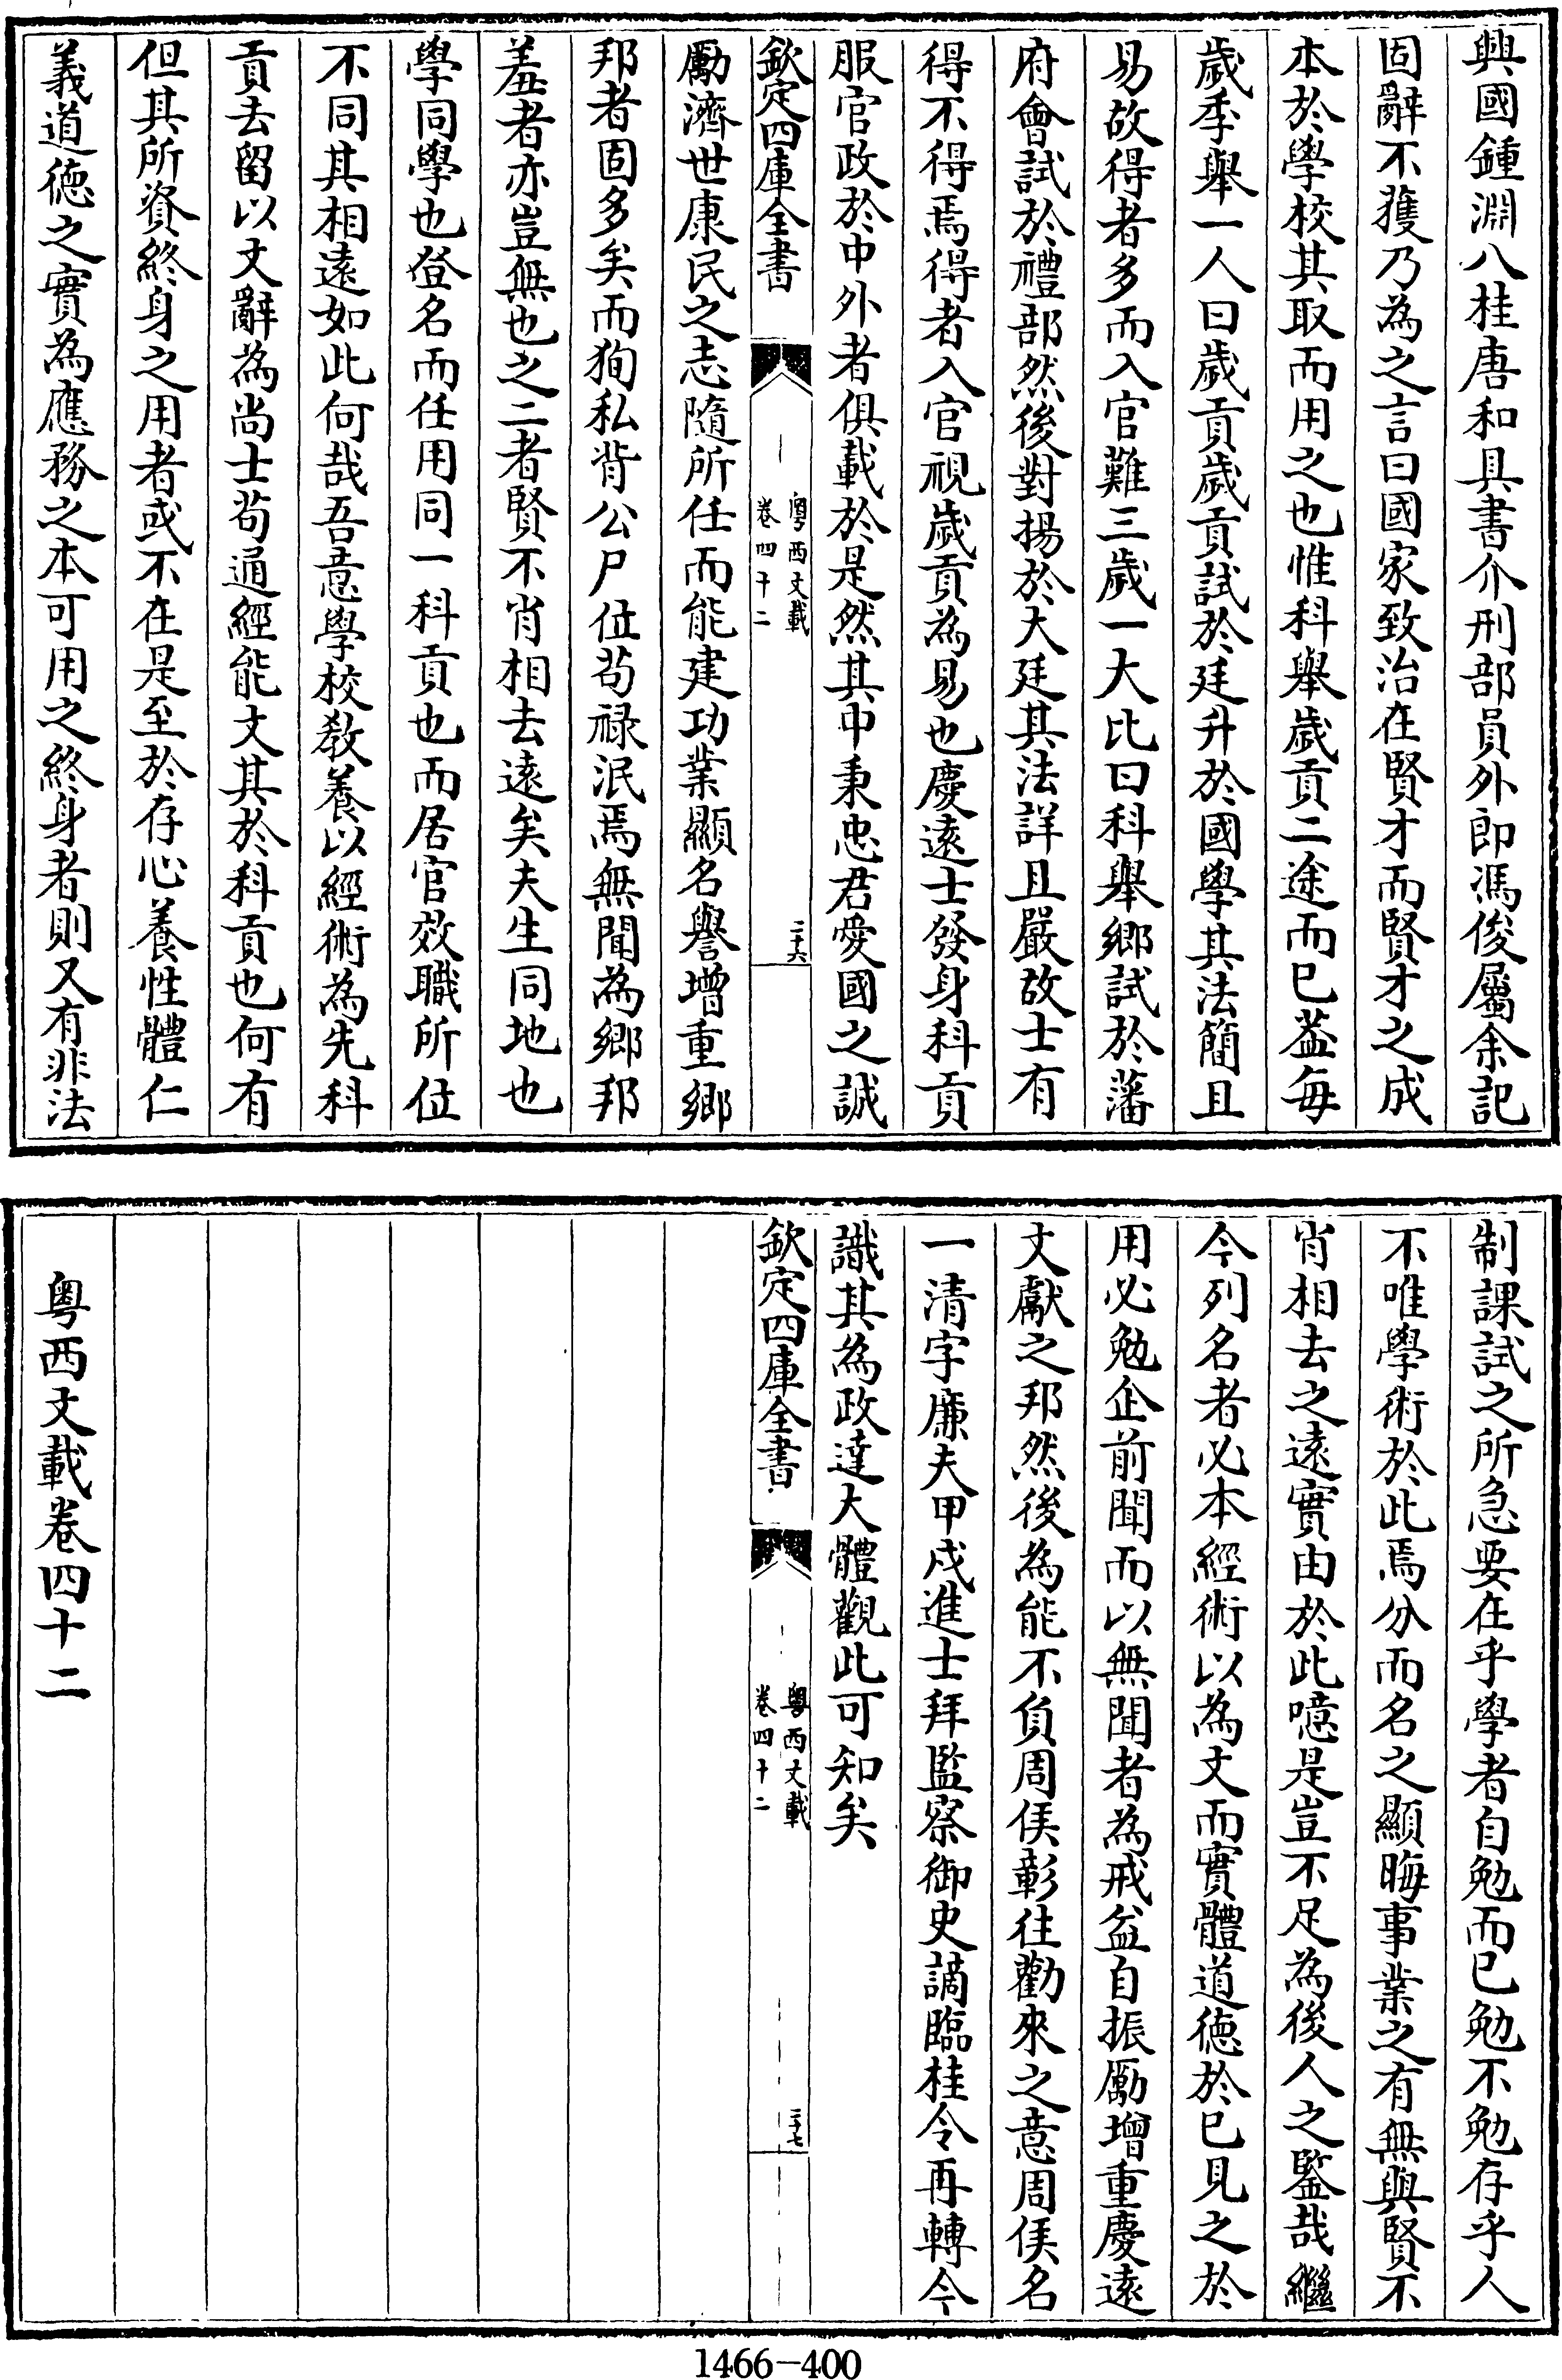 興國鍾淵八桂唐和具書介刑部員外郎馮俊屬余記
固辭不獲乃為之言曰國家致治在賢才而賢才之成
本於學校其取而用之也惟科舉歲貢二途而已葢每
歲季舉一人曰歲貢歲貢試於廷升於國學其法簡且
易故得者多而入官難三歲一大比曰科舉鄉試於藩
府會試於禮部然後對揚於大廷其法詳且嚴故士有
得不得焉得者入官視歲貢為易也慶遠士發身科貢
服官政於中外者俱載於是然其中秉忠君愛國之誠
欽定四庫全書
粵西文載
卷四十二
二十六
勵濟世康民之志隨所任而能建功業顯名譽增重鄉
邦者固多矣而狥私背公尸位苟禄泯焉無聞為鄉邦
羞者亦豈無也之二者賢不肖相去遠矣夫生同地也
學同學也登名而任用同一科貢也而居官效職所位
不同其相遠如此何哉吾意學校教養以經術為先科
貢去留以文辭為尚士苟通經能文其於科貢也何有
但其所資終身之用者或不在是至於存心養性體仁
義道徳之實為應務之本可用之終身者則又有非法
制課試之所急要在乎學者自勉而已勉不勉存乎人
不唯學術於此焉分而名之顯晦事業之有無與賢不
肖相去之遠實由於此噫是豈不足為後人之鑒哉繼
今列名者必本經術以為文而實體道徳於已見之於
用必勉企前聞而以無聞者為戒益自振勵增重慶遠
文獻之邦然後為能不負周侯彰往勸來之意周侯名
一清字廉夫甲戌進士拜監察御史謫臨桂令再轉今
識其為政達大體觀此可知矣
欽定四庫全書
粵西文載
卷四十二
二十七
粵西文載卷四十二
1466-400